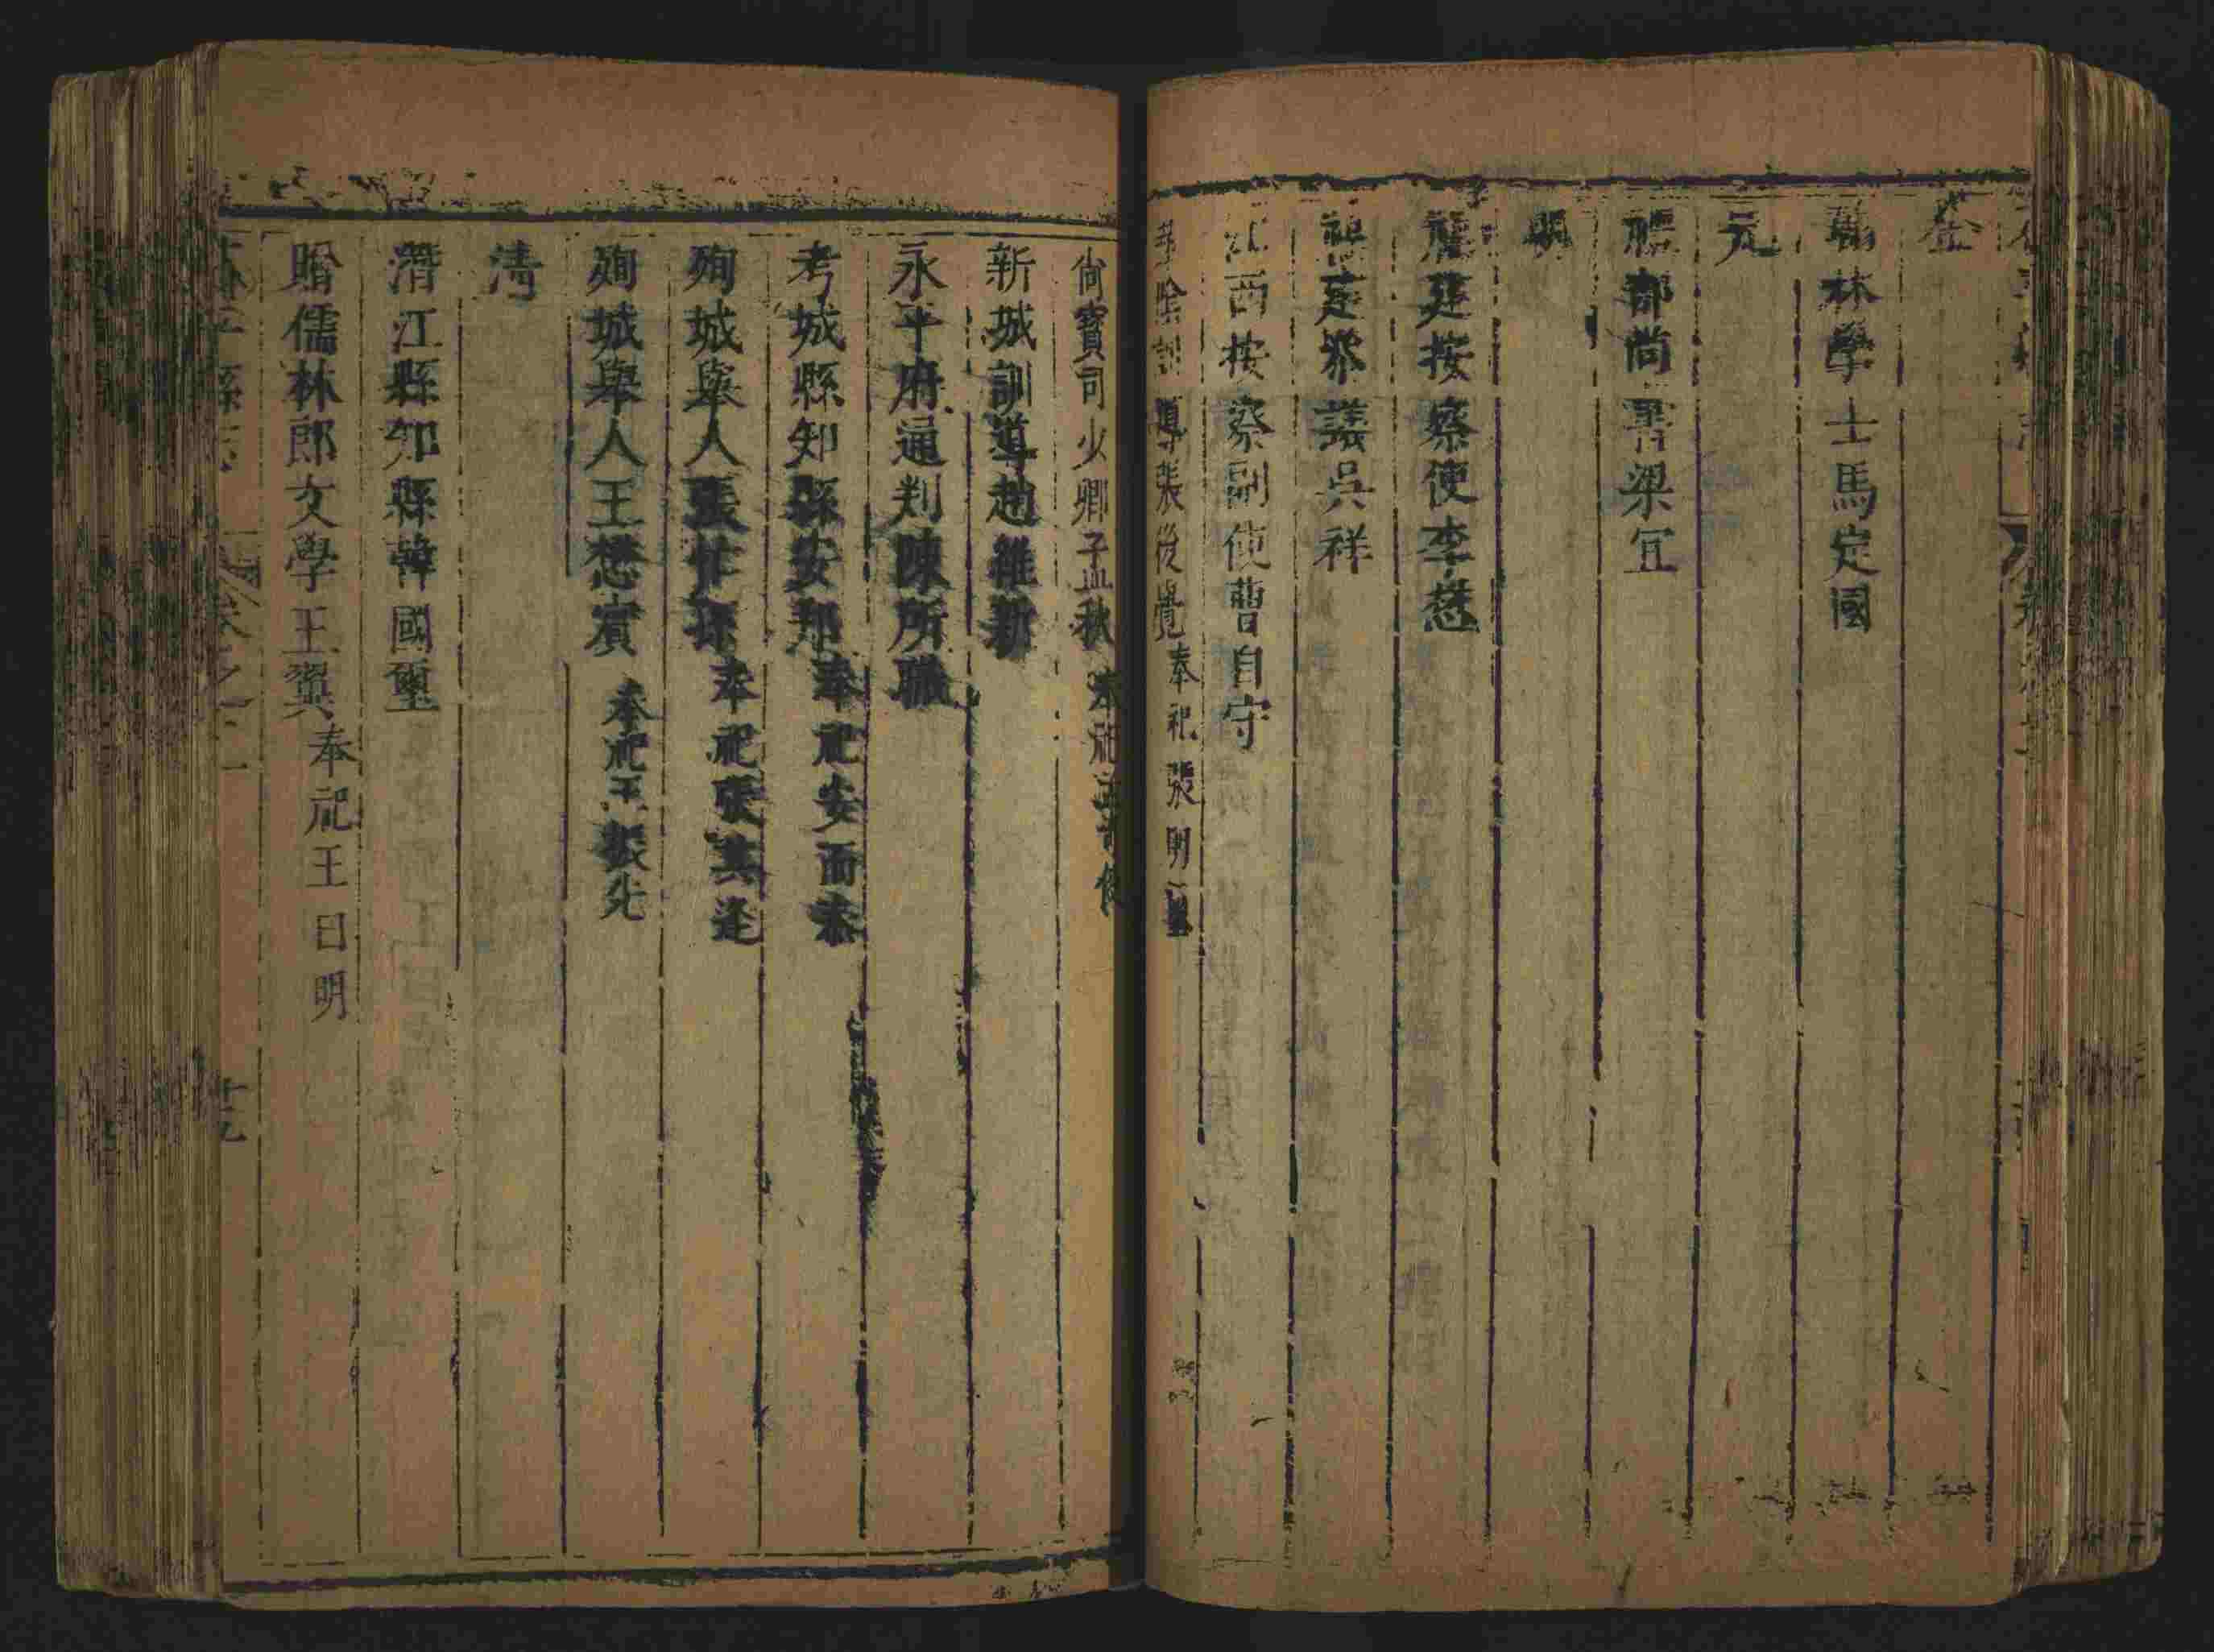 金
翰林學士馬定國
元
禮部尚書梁宜
明
福建按察使李懋
福建參議吳祥
江西按察副使曹自守
華陰訓導張後覺奉祀張明
尚寶司少卿子孟秋奉祀孟
新城訓導趙維新
永平府通判陳所職
考城縣知縣安邦奉祀安面泰
殉城舉人張奉祀張其逢
殉城舉人王懋賓奉祀王振先
清
潛江縣知縣韓國璽
贈儒林郎文學王翼奉祀王日明